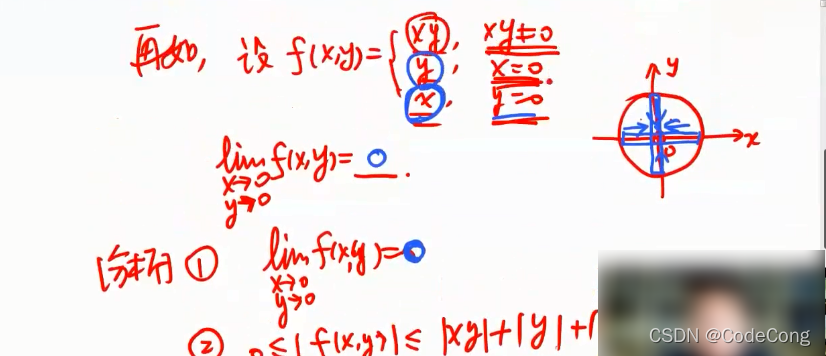 再如, 设 f(x,y)= { xy, xy≠0
y, x=0.
x, y=0
lim f(x,y)= 0 .
x→0
y→0
y
x
0
[分析] ① lim f(x,y)=0
x→0
y→0
② 0≤|f(x,y)|≤|xy|+|y|+|
CSDN @CodeCong